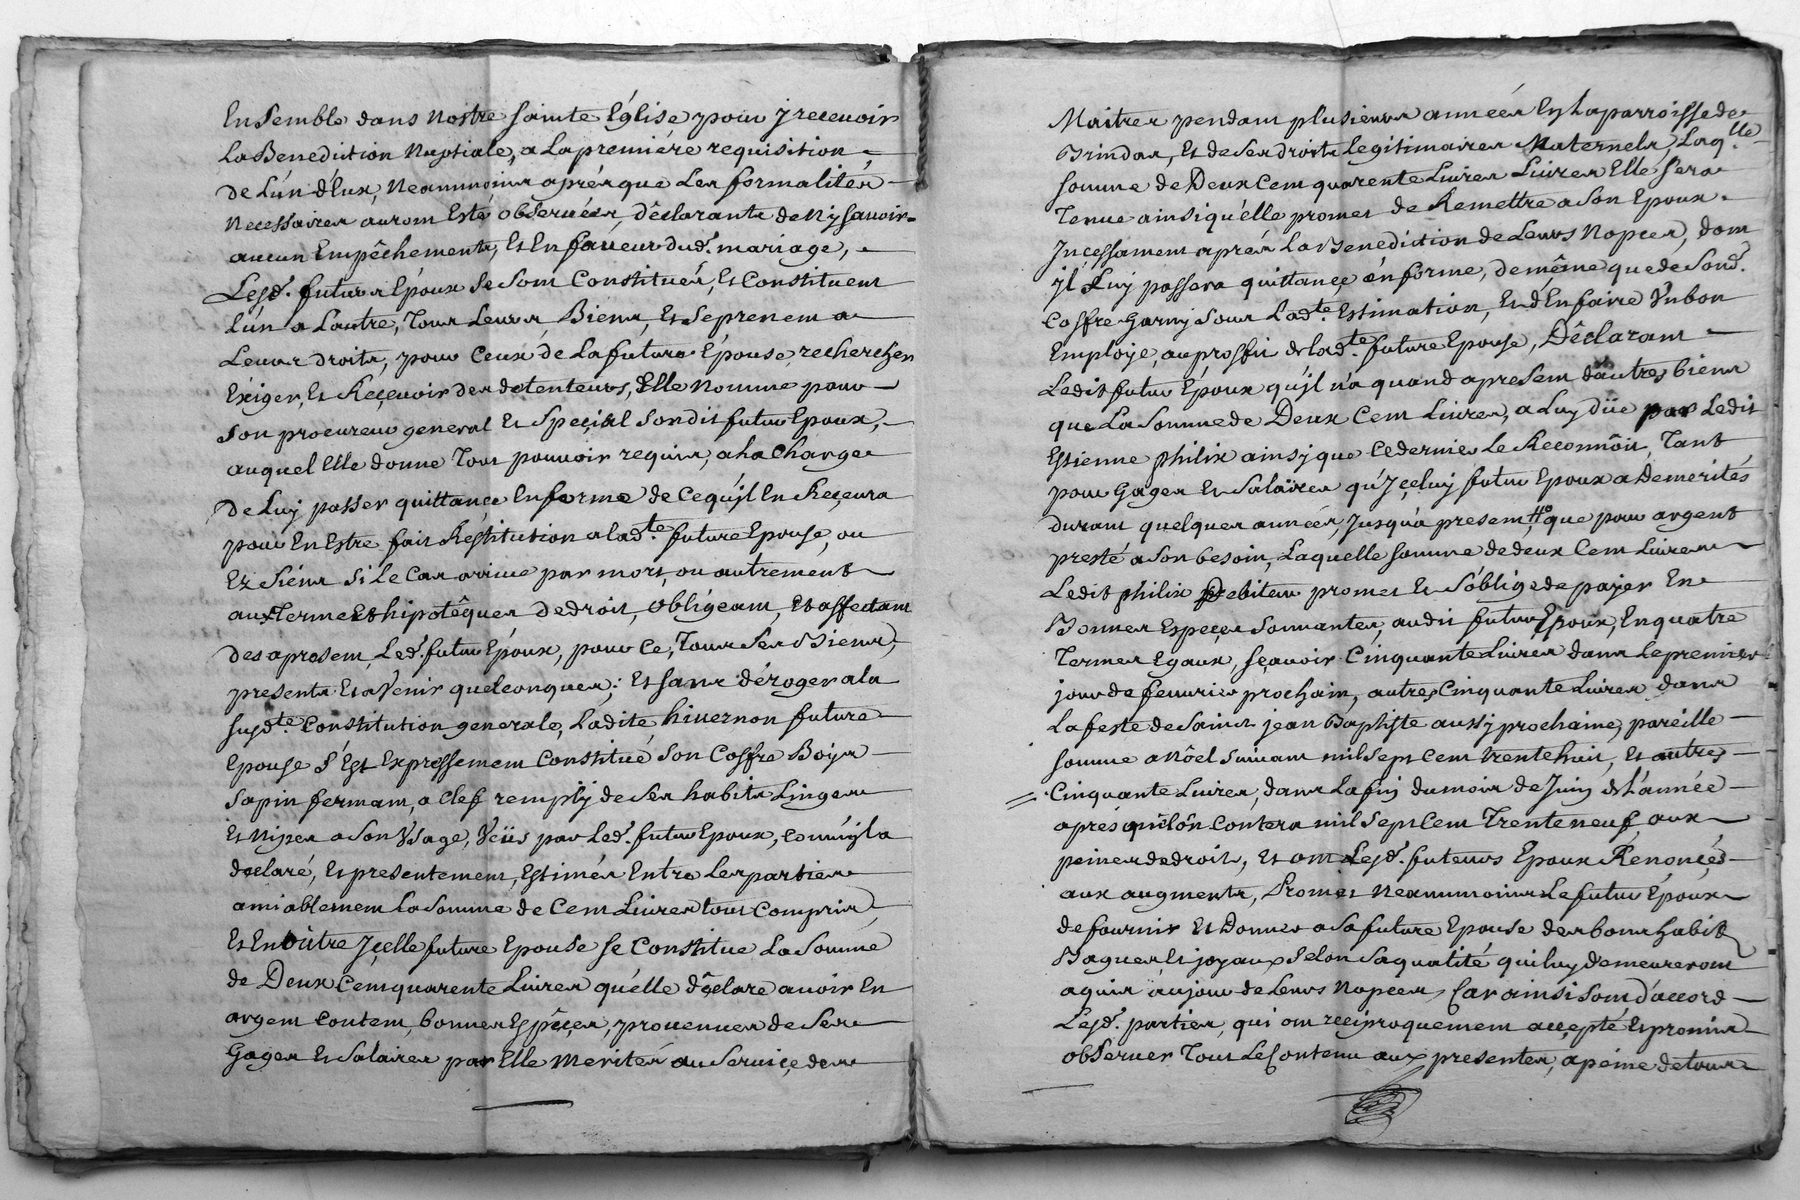 Ensemble dans Nostre sainte Eglise pour y recevoir
La Benediction Nuptiale, a La premiére requisition
de L'ún d'Eux, Neammoins aprés que Les formalités
Necessaires auront Esté observées, déclarants de Ny sauoir
aucun Empêchements, Et En faueur dud. mariage,
Lesd. futurs Epoux se sont Constitués, Et Constituent
L'ún a Lautre, Tous Leurs Biens, Et Se prenent a
Leurs droits, pour Ceux de La future Epouse, rechercher
Exiger, Et Reçeuoir des detenteurs, Elle Nomme pour
son procureur general Et Speçial sondit futur Epoux,
auquel Elle donne Tout pouuoir requis, a La Charge
De Luy passer quittançe En forme de Ce qu'jl En Reçeura
pour En Estre fait Restitution a lad.te future Epouse, ou
Ez Siéns Si Le Cas arriue par mort, ou autrement
aux Termes Et hipotêques De droit, obligeant, Et affectant
Des apresent, Led. futur Epoux, pour Ce, Tous Ses Biens,
presents Et a Venir quelconques; Et sans déroger a la
susd.te Constitution generale, Ladite hiuernon future
Epouse s'Est Expressement Constitué son Coffre Boijs
sapin fermant, a Clef remplÿ de Ses habits Linges
Et Nipes a Son Vsage, Veüs par Led. futur Epoux, Comm'jl a
declaré, Et presentement, Estimés Entre Les parties
amiablement La somme de Cent Liures tout Compris,
Et En oûtre Jçelle future Epouse se Constitue La Somme
de Deux Cent quarente Liures qu'élle déclare auoir En
argent Contant, bonnes Espêçes, prouenues de Ses
Gages Et Salaires par Elle Merités au Seruiçe des
Maitres pendant plusieurs années En La parroisse de
Brindas, Et de Ses droits Legitimaires Maternels, Laq.lle
somme de Deux Cent quarente Liures Liures Elle sera
Tenue ainsi qu'élle promet de Remettre a Son Epoux
Jnçessament aprés La Benediction de Leurs Nopces, dont
jl Luy passera quittançe énforme, de même que de Sond.
Coffre Garny Sous Lad.te Estimation, Et d'En faire Vn bon
Employe, au proffit de lad.te future Epouse, Déclarant
Ledit futur Epoux qu'jl n'a quand apresent d'autres biens
que La Somme de Deux Cent Liures, a Luy düe par Ledit
Estienne philix ainsy que Ce dernier Le Reconnôit, Tant
pour Gages Et Salaires qu'Jçeluy futur Epoux a Demerités
durant quelques années, Jusqu'a present, que pour argent
presté a Son besoin, Laquelle somme de deux Cent Liures
Ledit philix Debiteur promet Et S'óblige de paÿer En
Bonnes Espeçes Sonnantes, audit futur Epoux, En quatre
Termes Egaux, sçauoir Cinquante Liures dans Le premier
jour de feuurier prochain, autres Cinquante Liures dans
La feste de Saint jean Baptiste aussy prochaine, pareille
somme a Nôel suiuant mil Sept Cent trente huit, Et autres
Cinquante Liures, dans La fin du mois de Juin de L'année
aprés qu'ón Contera mil Sept Cent Trente neuf, aux
peines de droit, Et ont Lesd. futeurs Epoux Renonçés
aux augments, Promet Neammoins Le futur Epoux
de fournir Et Donner a Sa future Epouse des bons habits
Bagues Et joyaux Selon Sa qualité qui luy demeureront
aquis au jour de Leurs Nopces, Car ainsi Sont d'accord
Lesd. parties, qui ont reçiproquement acçepté Et promis
obseruer Tout Le Contenu aux presentes, a peine de tous